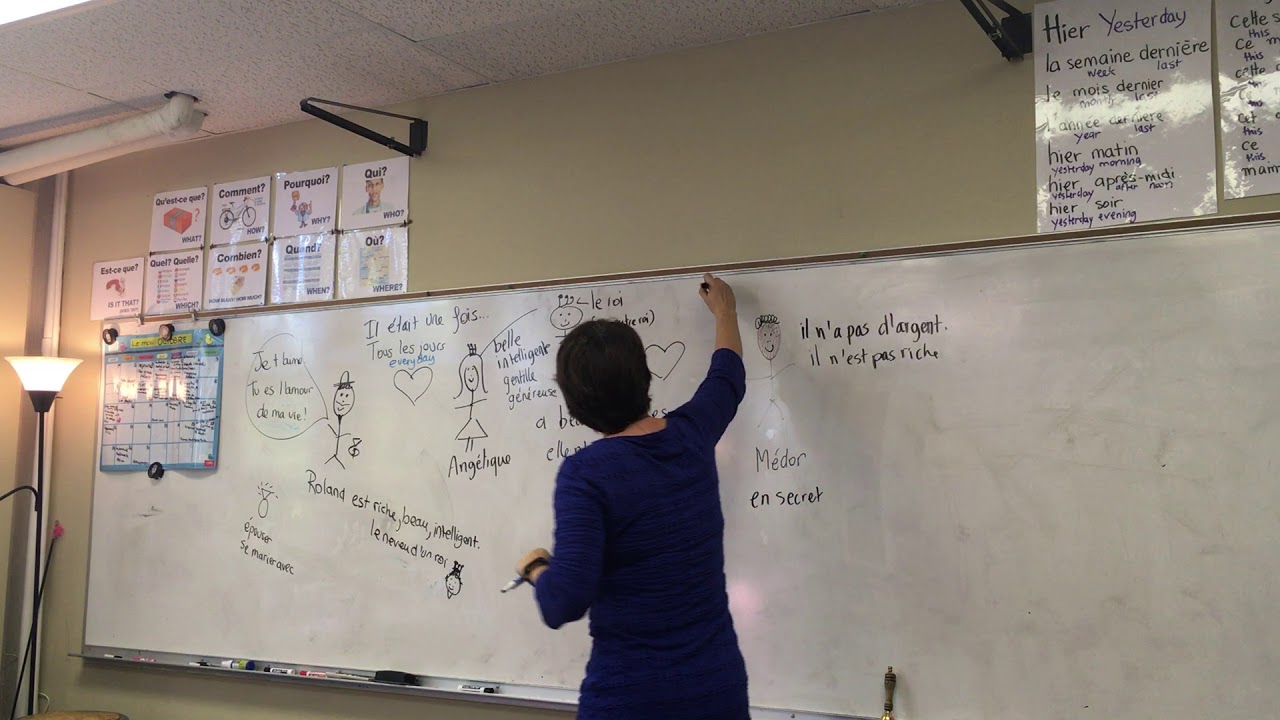 Hier Yesterday
la semaine dernière
week last
le mois dernier
month last
l'année dernière
year last
hier matin
yesterday morning
hier après-midi
yesterday after noon
hier soir
yesterday evening
Cette
this
Ce
this
cette
this
this
cet
this
ce
this
Qu'est-ce que?
WHAT?
Comment?
HOW?
Pourquoi?
WHY?
Qui?
WHO?
Est-ce que?
IS IT THAT?
Quel? Quelle?
WHICH?
Combien?
HOW MANY? HOW MUCH?
Quand?
WHEN?
Où?
WHERE?
Le mois
Je t'aime.
Tu es l'amour
de ma vie!
Il était une fois...
Tous les jours
everyday
belle
intelligente
gentille
généreuse
le roi
Angélique
Roland est riche, beau, intelligent.
le neveu d'un roi
épouser
se marier avec
il n'a pas d'argent.
il n'est pas riche
Médor
en secret